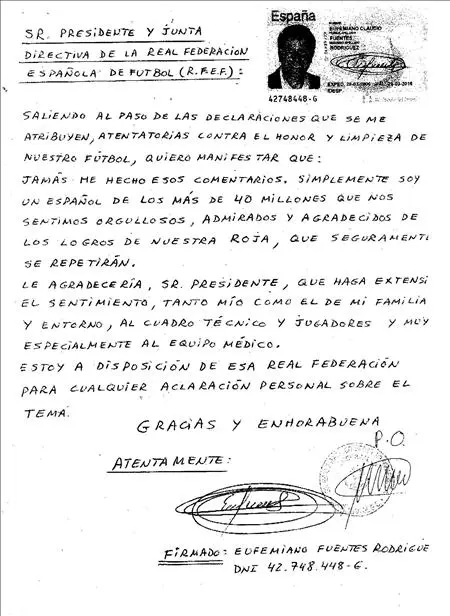 SR. PRESIDENTE Y JUNTA
DIRECTIVA DE LA REAL FEDERACION
ESPAÑOLA DE FUTBOL (R.F.E.F.):
España
EUFEMIANO CLAUDIO
FUENTES
RODRIGUEZ
42748448-G
SALIENDO AL PASO DE LAS DECLARACIONES QUE SE ME
ATRIBUYEN, ATENTATORIAS CONTRA EL HONOR Y LIMPIEZA DE
NUESTRO FÚTBOL, QUIERO MANIFESTAR QUE:
JAMÁS HE HECHO ESOS COMENTARIOS. SIMPLEMENTE SOY
UN ESPAÑOL DE LOS MÁS DE 40 MILLONES QUE NOS
SENTIMOS ORGULLOSOS, ADMIRADOS Y AGRADECIDOS DE
LOS LOGROS DE NUESTRA ROJA, QUE SEGURAMENTE
SE REPETIRÁN.
LE AGRADECERÍA, SR. PRESIDENTE, QUE HAGA EXTENSI
EL SENTIMIENTO, TANTO MÍO COMO EL DE MI FAMILIA
Y ENTORNO, AL CUADRO TÉCNICO Y JUGADORES Y MUY
ESPECIALMENTE AL EQUIPO MÉDICO.
ESTOY A DISPOSICIÓN DE ESA REAL FEDERACIÓN
PARA CUALQUIER ACLARACIÓN PERSONAL SOBRE EL
TEMA.
GRACIAS Y ENHORABUENA
P.O.
ATENTAMENTE:
FIRMADO: EUFEMIANO FUENTES RODRIGUE
DNI 42.748.448-G.